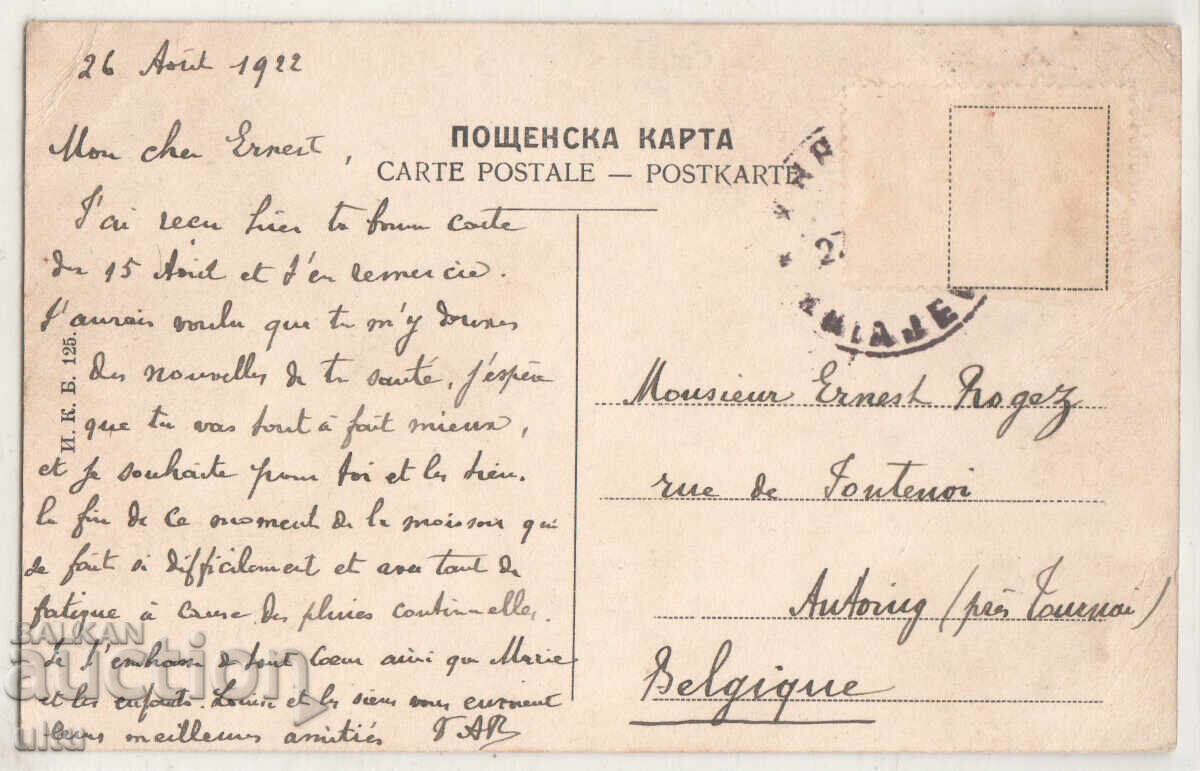 26 Août 1922
Mon cher Ernest,
J'ai reçu hier ta bonne carte
du 15 Août et t'en remercie.
J'aurais voulu que tu m'y donnes
des nouvelles de ta santé, j'espère
que tu vas tout à fait mieux,
et je souhaite pour toi et les tiens.
la fin de ce moment de la moisson qui
se fait si difficilement et avec tant de
fatigue à cause des pluies continuelles.
Je t'embrasse de tout cœur ainsi que Marie
et les enfants. Louise et les siens vous envoient
leurs meilleures amitiés
И. К. Б. 125.
ПОЩЕНСКА КАРТА
CARTE POSTALE — POSTKARTE
KNIAJE
Monsieur Ernest Rogez
rue de Fontenoi
Antoing (près Tournai)
Belgique
BALKAN
auction
ultu